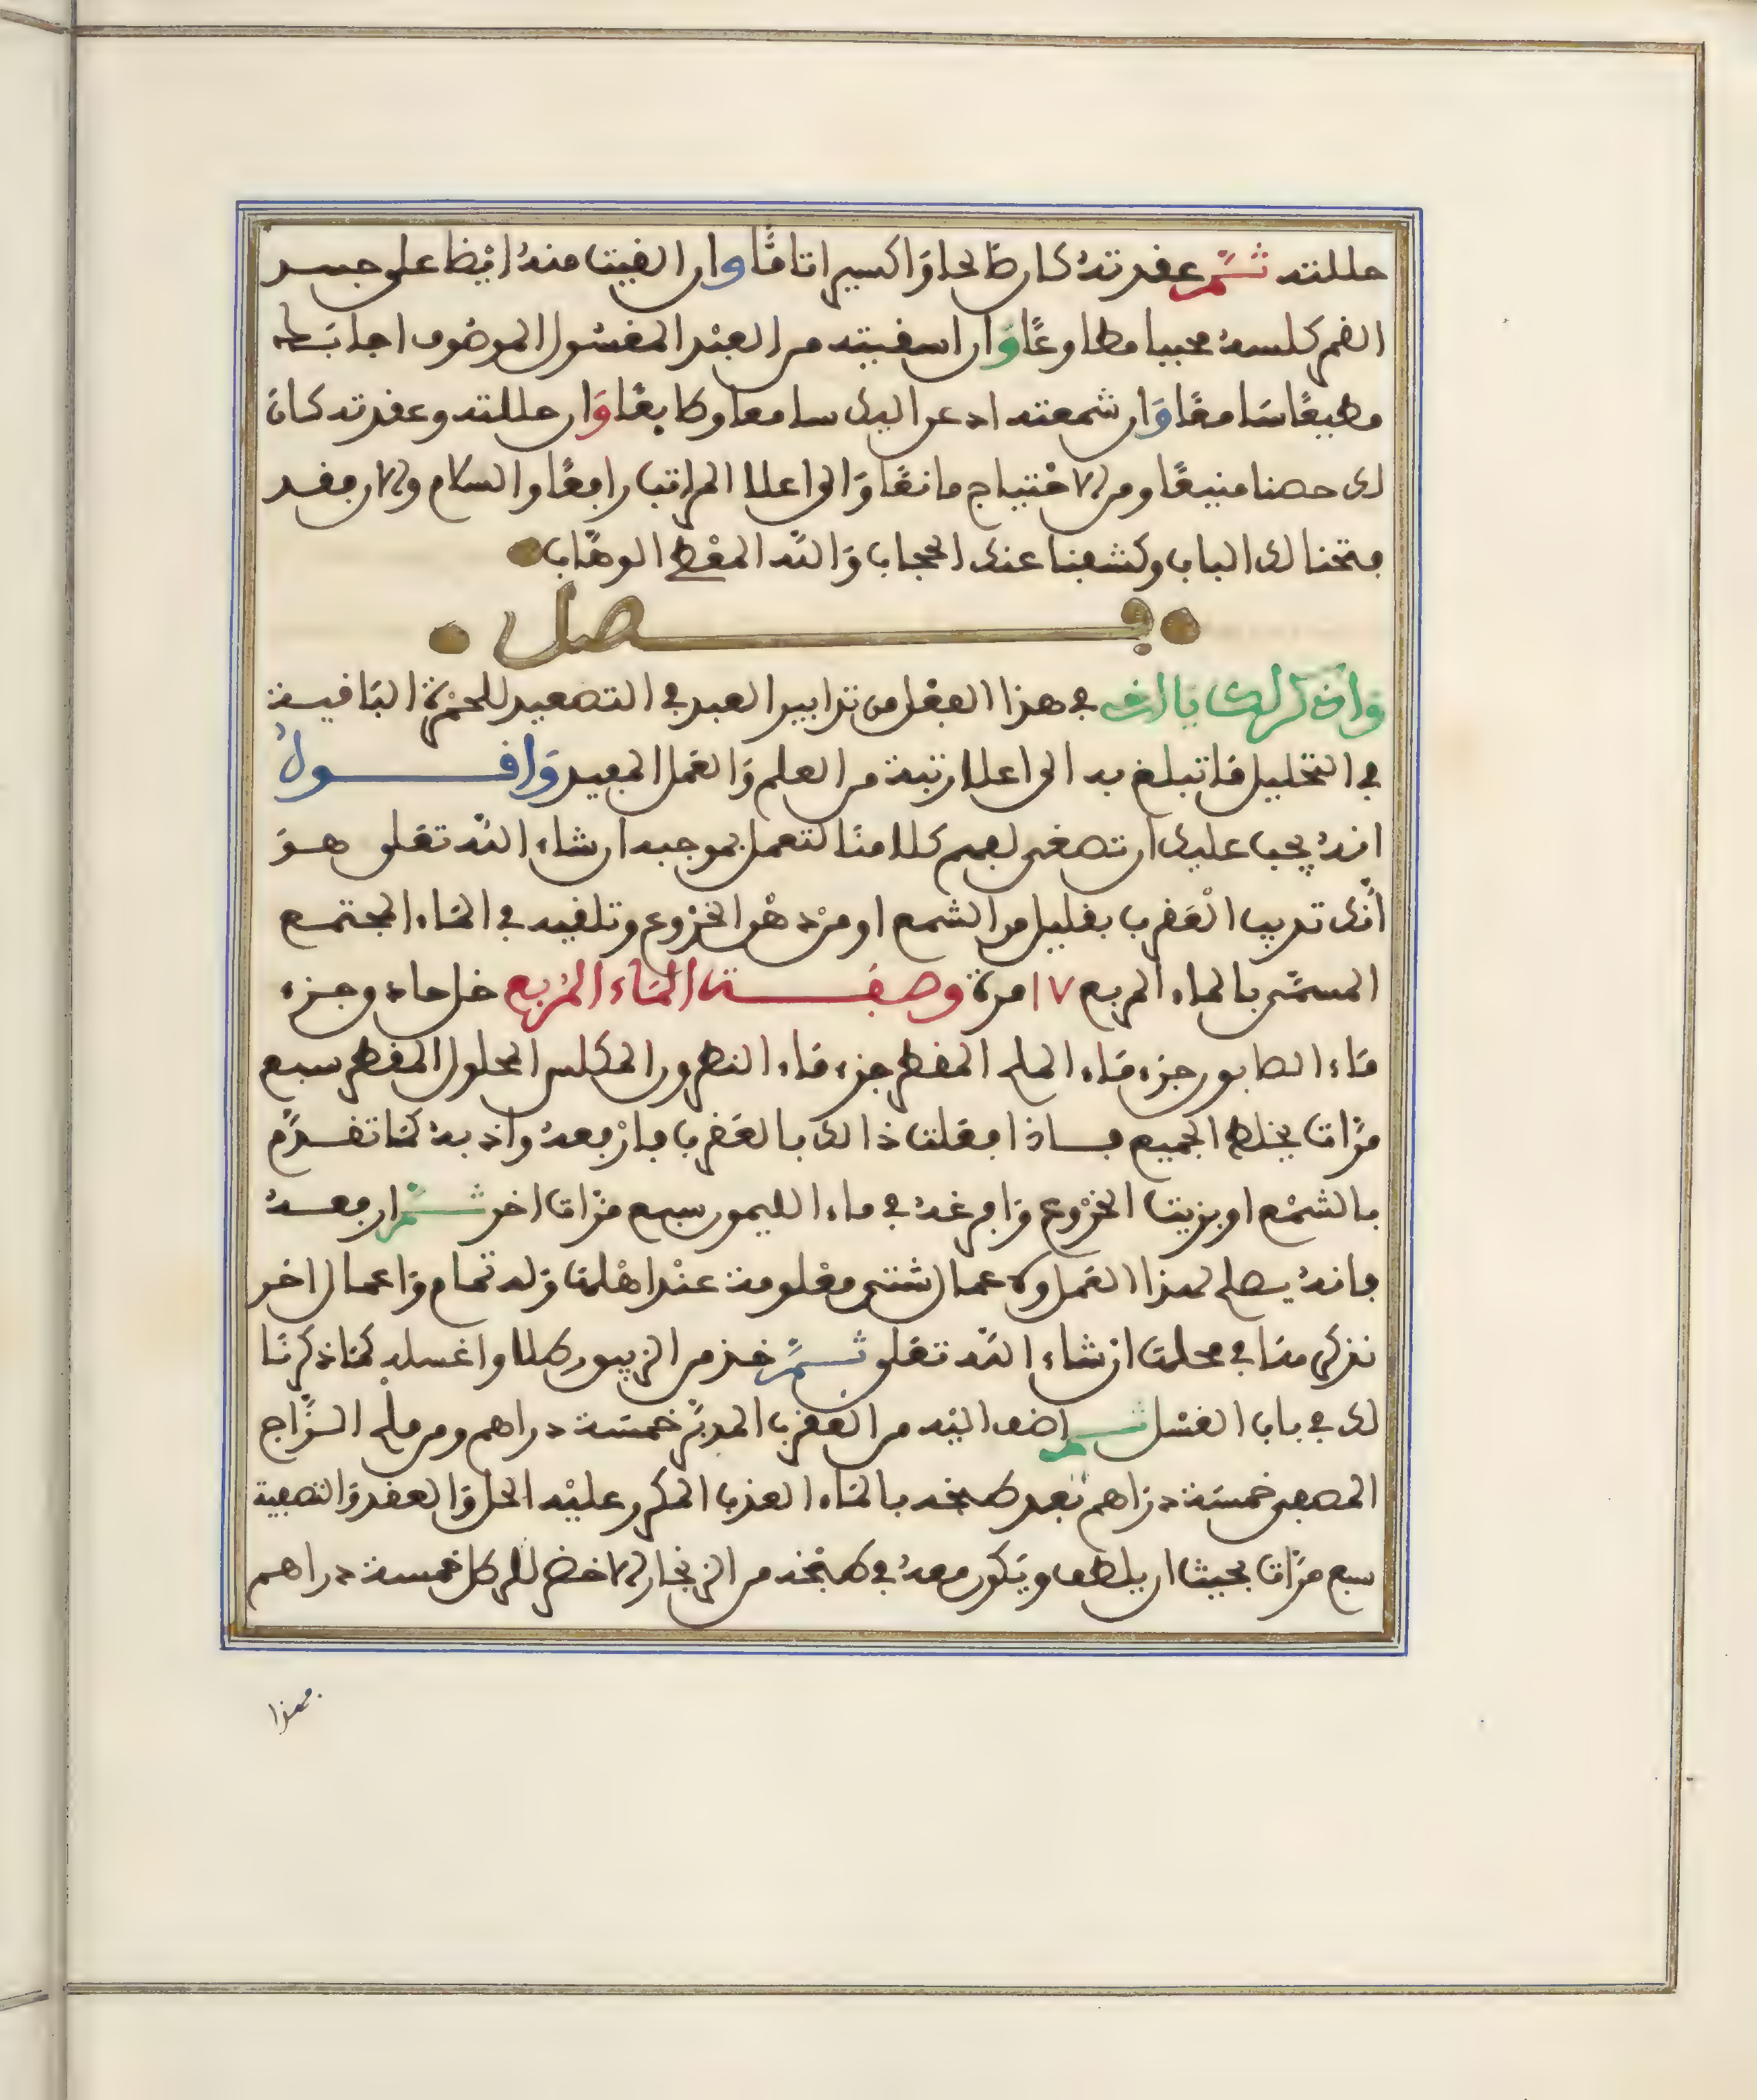 حللته ثم عقدته كان صالحا وَاكسيرا تامًّا وان القيت منهُ ايْضا على جسد
القمر كلسهُ مجيبا مطاوعًا وَان اسقيته من العبْد المغسُول الموصُوف اجابَ له
مطيعًا سَامعًا وَان شمعته ادعن اليك سامعا وطابعًا وَان حللته وعقدته كانَ
لك حصنا منيعًا ومن الاحْتياج مانعًا وَالى اعلا المراتب رافعًا والسلام والان فقد
فتحنا لك الباب وكشفنا عنك الحجاب وَاللّه المعْطى الوهّاب
فصل
وَاذكر لك يا اخى في هذا الفصْل من تدابير العبد في التصعيد للحمْرة الباقية
في التحليل مَا تبلغ به الى اعلا رتبة من العلم وَالعَمل المفيد وَاقول
انهُ يجب عليك ان تصغى لفهم كلامنَا لتعمل بموجبه ان شاء اللّه تعَلى هوَ
أنّك تديب العَقرب بقليل من الشمع او من دهْن الخرْوع وتلقيه في المَاء المجتمع
المسمّى بالماء المربع ١٧ مرة وصفة المَاء المُربع خل حاد وجزء
مَاء الصابون جزء مَاء الملح المقطر جزء مَاء النطرون المكلس المحلول المقطر سبع
مرَّات يخلط الجميع فاذا فعَلت ذالك بالعَقرب فارْفعهُ واذبهُ كمَا تقدّم
بالشمْع او بزيت الخرْوع وَافرغهُ في ماء الليمون سبع مرَّات اخر ثمّ ارفعهُ
فانهُ يصلح لهذا العَمل ولاعمال شتى معْلومة عنْد اهْلهَا وَله تمام وَاعمال اخر
نذكرهَا في محلهَا ان شاء اللّه تعَلى ثمَّ خذ من الزيبق رطلا واغسله كمَا ذكرنَا
لك في باب الغسْل ثم اضف اليْه من العقرب المدبَّر خمسَة دراهم ومن ملْح الزَّاج
المصعى خمسَة درَاهم بَعد طبخه بالمَاء العذب المكرر عليْه الحل وَالعقد وَالتصعية
سبع مرَّات بحيث ان يلطف ويَكون معهُ في طبْخه من الزنجار الاخضر لكل خمسة دراهم
فهذا